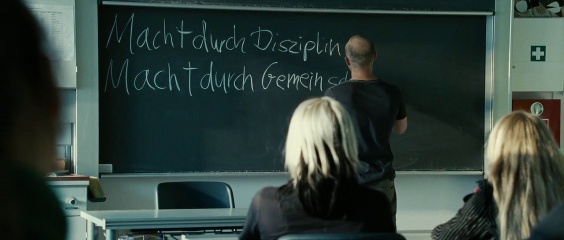 Macht durch Disziplin
Macht durch Gemeinsc